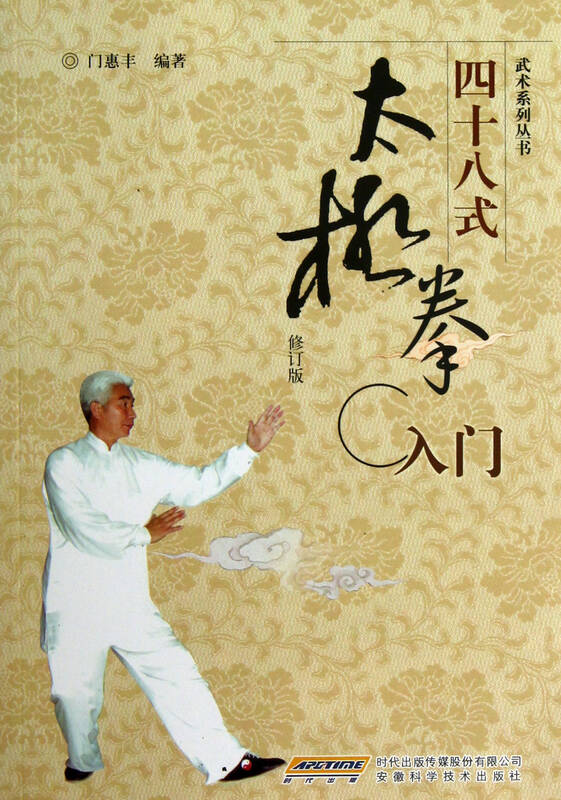 武术系列丛书
四十八式
太极拳
入门
修订版
门惠丰 编著
ARCTIME
时代出版
时代出版传媒股份有限公司
安徽科学技术出版社